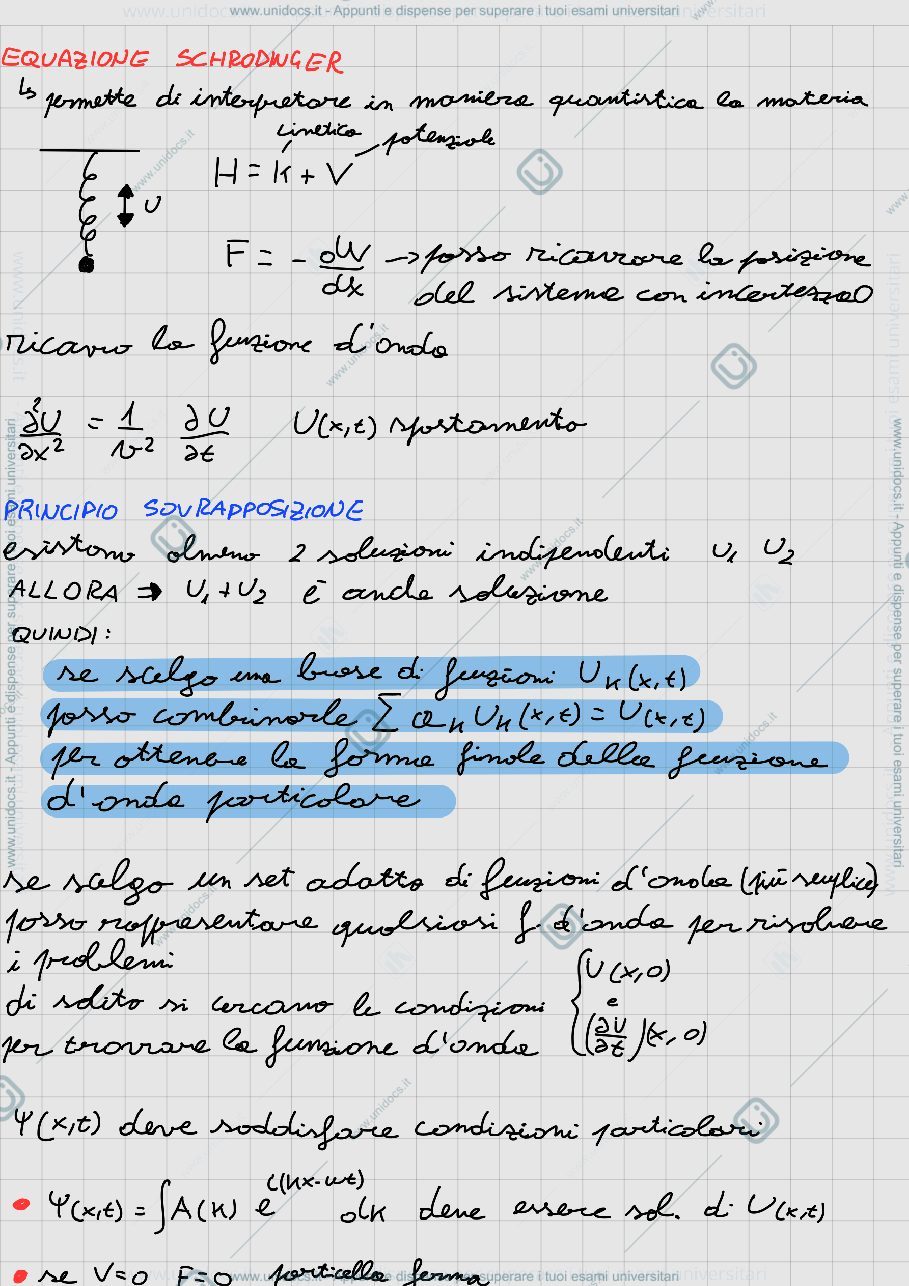 www.unidocs.it - Appunti e dispense per superare i tuoi esami universitari
EQUAZIONE SCHRODINGER
↳ permette di interpretare in maniera quantistica la materia
cinetica potenziale
H = K + V
U
F = - dV/dx → posso ricavare la posizione
del sistema con incertezza 0
ricavo la funzione d'onda
∂²U/∂x² = 1/v² ∂U/∂t U(x,t) spostamento
PRINCIPIO SOVRAPPOSIZIONE
esistono almeno 2 soluzioni indipendenti U₁ U₂
ALLORA ⇒ U₁+U₂ è anche soluzione
QUINDI:
se scelgo una base di funzioni U_K(x,t)
posso combinarle Σ a_K U_K(x,t) = U(x,t)
per ottenere la forma finale della funzione
d'onda particolare
se scelgo un set adatto di funzioni d'onda (più semplice)
posso rappresentare qualsiasi f. d'onda per risolvere
i problemi
di solito si cercano le condizioni { U(x,0)
e
per trovare la funzione d'onda (∂U/∂t)(x,0)
Ψ(x,t) deve soddisfare condizioni particolari
• Ψ(x,t) = ∫A(K) e^i(Kx-ωt) dK deve essere sol. di U(x,t)
• se V=0 F=0 particella ferma
www.unidocs.it - Appunti e dispense per superare i tuoi esami universitari